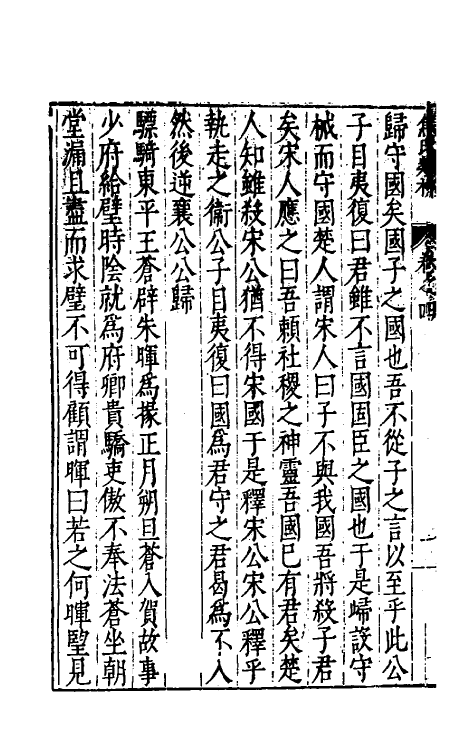 歸守國矣國子之國也吾不從子之言以至乎此公
子目夷復曰君雖不言國國固臣之國也于是歸設守
械而守國楚人謂宋人曰子不與我國吾將殺子君
矣宋人應之曰吾賴社稷之神靈吾國已有君矣楚
人知雖殺宋公猶不得宋國于是釋宋公宋公釋乎
執走之衞公子目夷復曰國為君守之君曷為不入
然後逆襄公公歸
驃騎東平王蒼辟朱暉為掾正月朔旦蒼入賀故事
少府給璧時陰就為府卿貴驕吏傲不奉法蒼坐朝
堂漏且盡而求璧不可得顧謂暉曰若之何暉望見